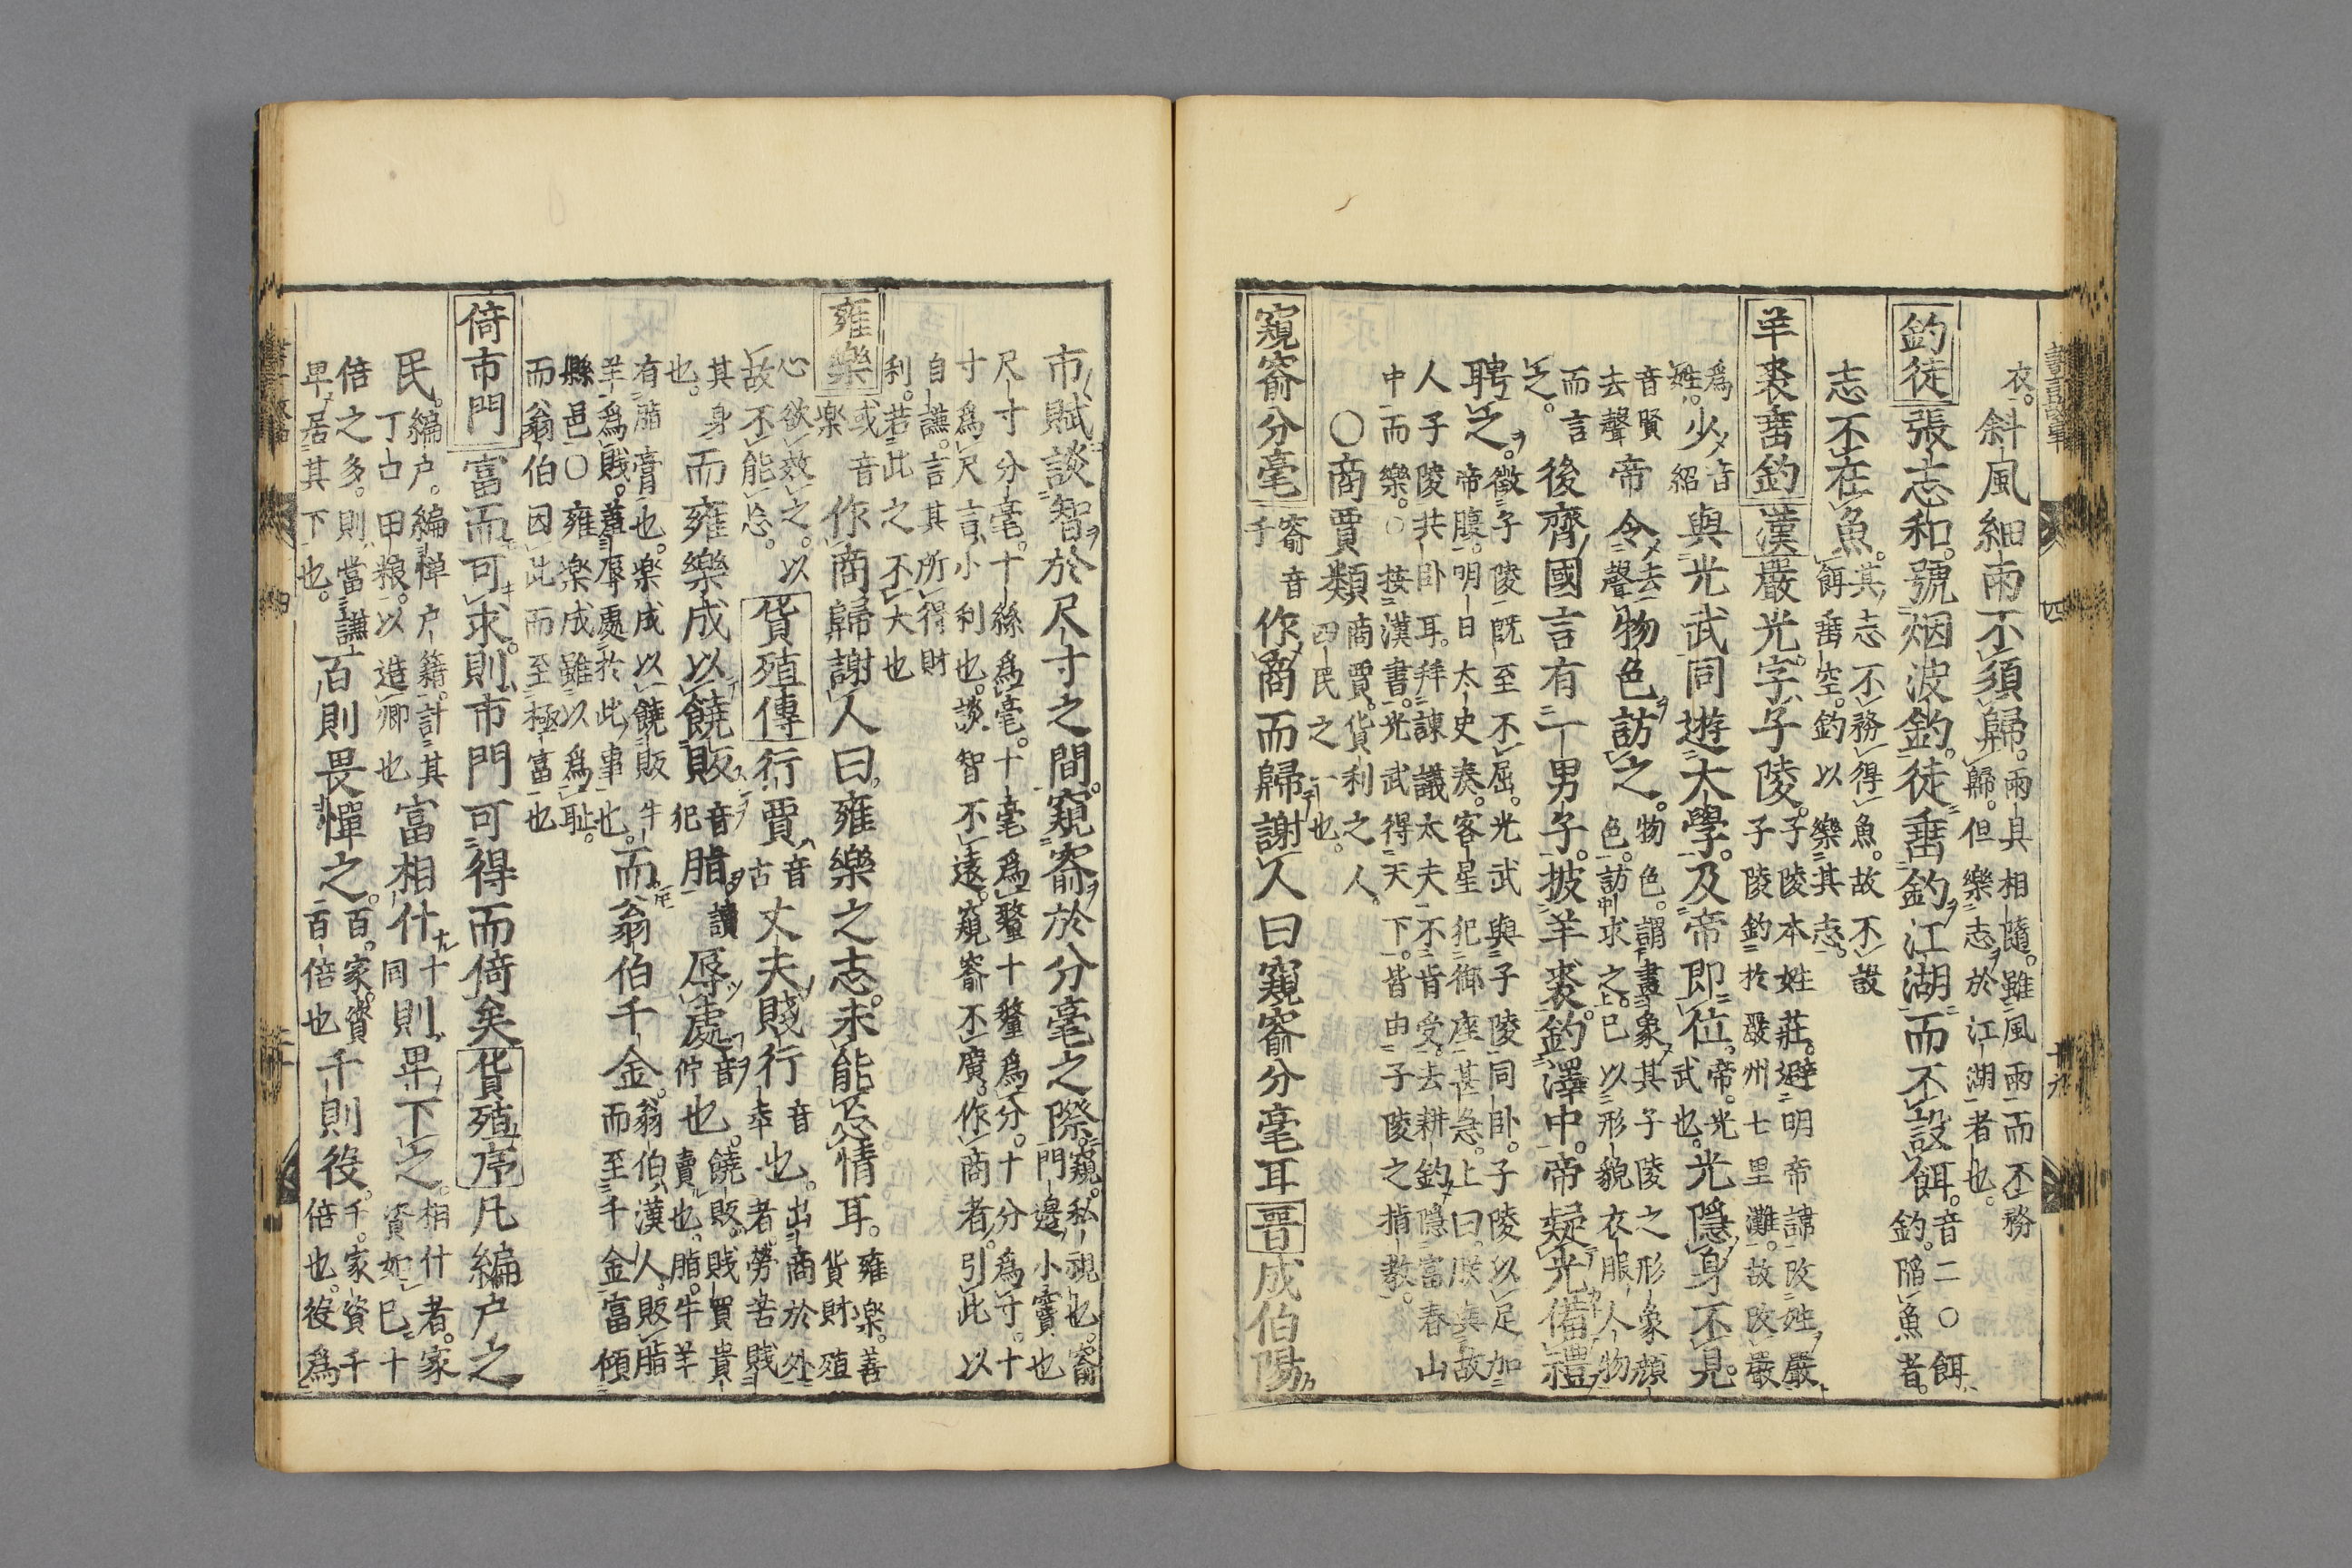 衣。斜風細雨不須歸。雨具相隨。雖風雨而不務
歸。但樂志於江湖者也。
釣徒張志和。號烟波釣徒。垂釣江湖而不設餌。音二〇餌
釣。陷魚者。
志不在魚。其志不務得魚。故不設
餌垂空釣以樂其志。
羊裘垂釣漢嚴光字子陵。子陵本姓莊。避明帝諱改姓嚴
子陵釣於嚴州七里灘。故改嚴
爲
姓。少音
紹與光武同遊太學。及帝即位。帝。光
武也。光隱身不見。
音賢
去聲帝令去
聲物色訪之。物色。謂畫象其子陵之形象顏
色。訪求之。已以形貌衣服人物
而言
之。後齊國言有一男子。披羊裘釣澤中。帝疑光備禮
聘之。徵子陵既至不屈。光武與子陵同卧。子陵以足加
帝腹。明日太史奏。客星犯御座甚急。上曰。朕與故
人子陵共卧耳。拜諫議太夫不肯受。去耕釣隱富春山
中而樂。〇按漢書。光武得天下。皆由子陵之指教。
〇商賈類商賈。貨利之人。
四民之一也。
窺窬分毫窬音
千作商而歸謝人曰窺窬分毫耳晋成伯陽
市賦談智於尺寸之間。窺窬於分毫之際。窺。私視也。窬
門邊小竇也
尺寸分毫。十絲爲毫。十毫爲釐十釐爲分。十分爲寸。十
寸爲尺言小利也。談智不遠。窺窬不廣。作商者。引此以
自謙。言其所得財
利。若此之不大也
雍樂或音
楽作商歸謝人曰。雍樂之志。未能忘情耳。雍楽。善
貨財殖
心欲效之。以
故不能忘。貨殖傳行賈音
古丈夫賤行音
幸也。出商於外
者。勞苦賤
其身而雍樂成以饒販音
犯脂讀辱處音
佇也。饒販。賤買貴
賣也。脂。牛羊
也。
有脂膏也。楽成以饒販牛
羊爲賎。蓋辱處於此事也。而翁伯千金。翁伯漢人。販脂
而至千金富傾
縣邑〇雍楽成雖以爲耻。
而翁伯因此而至極富也
倚市門富而可求。則市門可得而倚矣貨殖序凡編户之
民。編户。編憚户籍。計其
丁口田粮。以造卿也富相什十
同則卑下之。相什者。家
資如已十
倍之多。則當謙
卑居其下也。百則畏憚之。百。家資
百倍也千則役。千。家資千
倍也。役爲